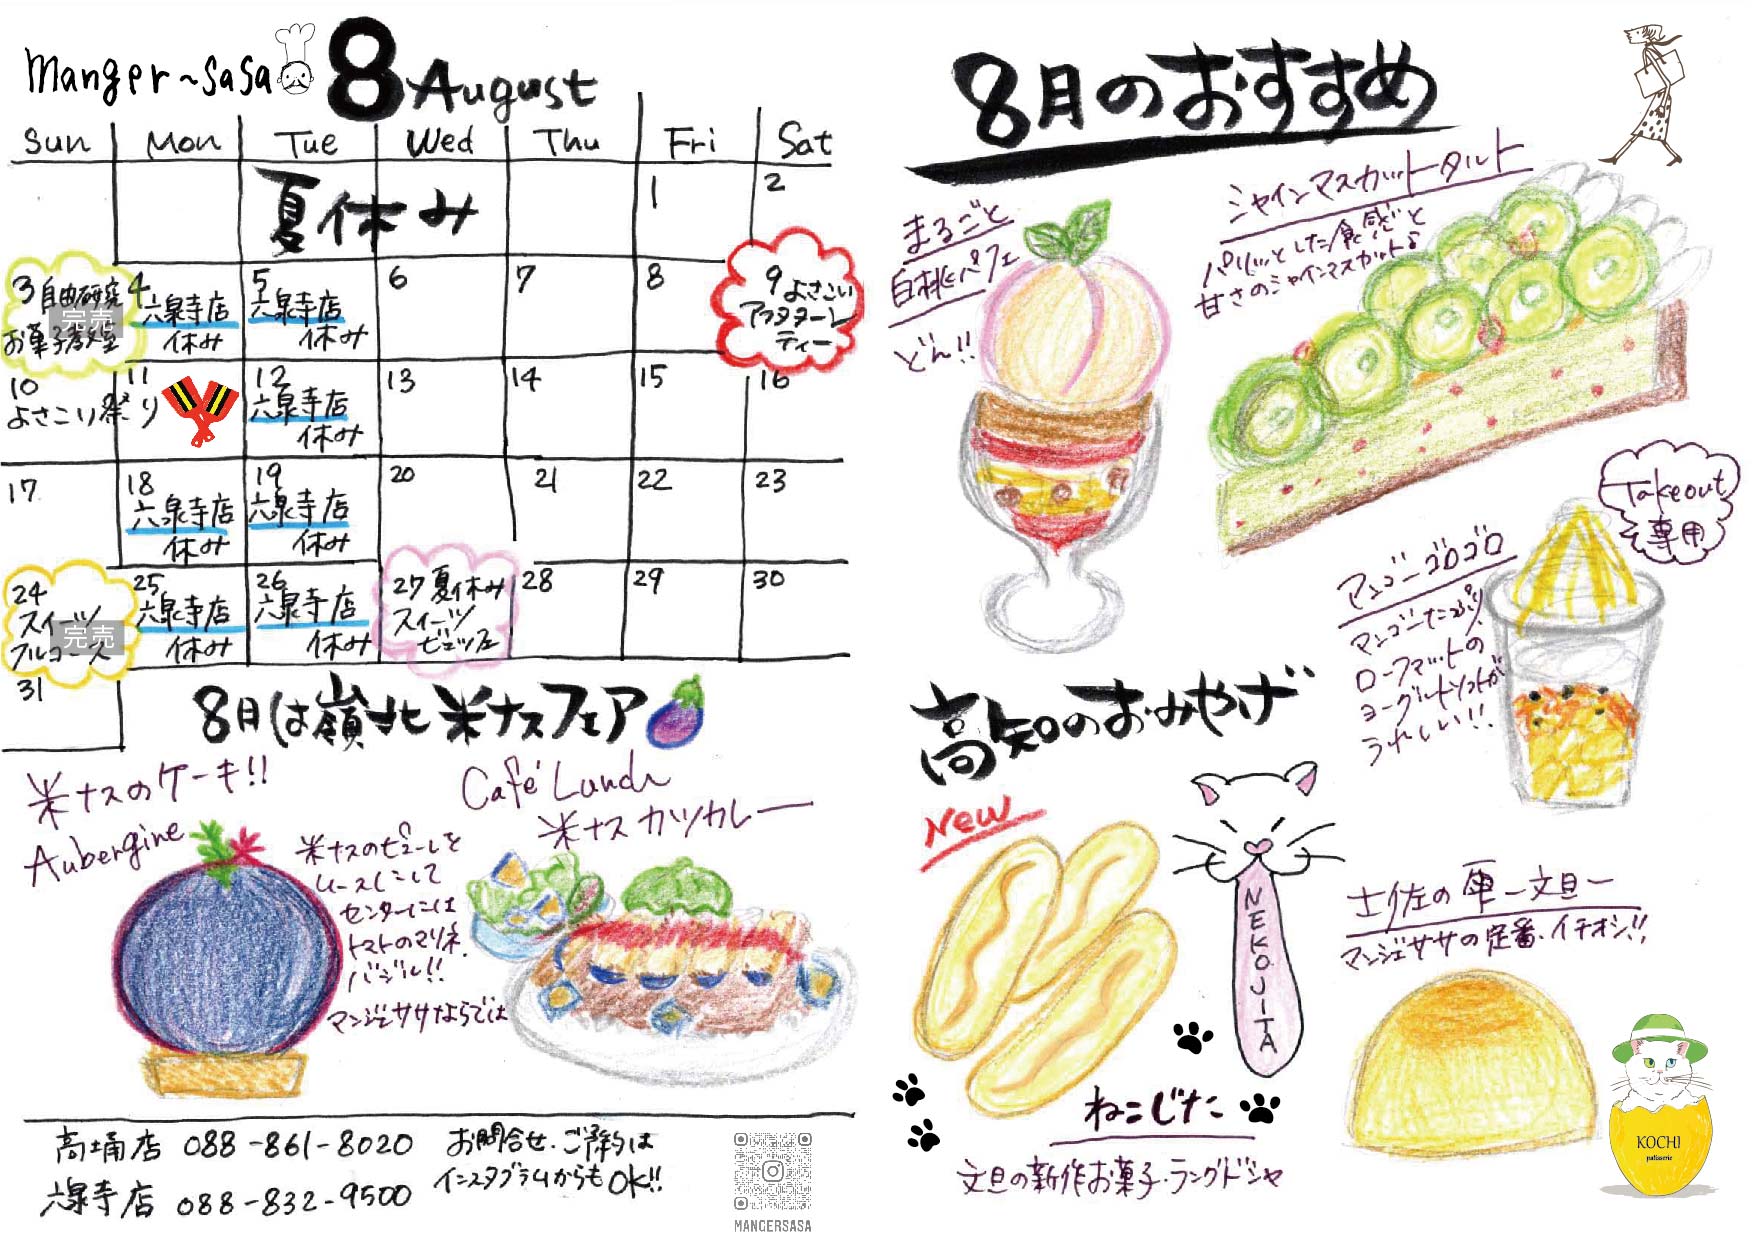 manger~sasa
8 August
Sun Mon Tue Wed Thu Fri Sat
夏休み
1
2
3 自由研究
お菓子教室
完売
4
六泉寺店
休み
5
六泉寺店
休み
6
7
8
9 よさこい
アフタヌーン
ティー
10
よさこい祭り
11
12
六泉寺店
休み
13
14
15
16
17
18
六泉寺店
休み
19
六泉寺店
休み
20
21
22
23
24
スイーツ
フルコース
完売
25
六泉寺店
休み
26
六泉寺店
休み
27 夏休み
スイーツ
ビュッフェ
28
29
30
31
8月は嶺北米ナスフェア
米ナスのケーキ!!
Aubergine
米ナスのピューレを
ムースにして
センターには
トマトのマリネ、
バジル!!
マンジェササならでは
Café Lunch
米ナスカツカレー
高埇店 088-861-8020
六泉寺店 088-832-9500
お問合せ、ご予約は
インスタグラムからもOK!!
MANGERSASA
8月のおすすめ
まるごと
白桃パフェ
どん!!
シャインマスカットタルト
パリッとした食感と
甘さのシャインマスカット♪
Takeout
専用
マンゴーゴロゴロ
マンゴーたっぷり、
ローファットの
ヨーグルトソフトが
うれしい!!
高知のおみやげ
New
NEKOJITA
ねこじた
文旦の新作お菓子・ラングドシャ
土佐の雫ー文旦ー
マンジェササの定番、イチオシ!!
KOCHI
patisserie